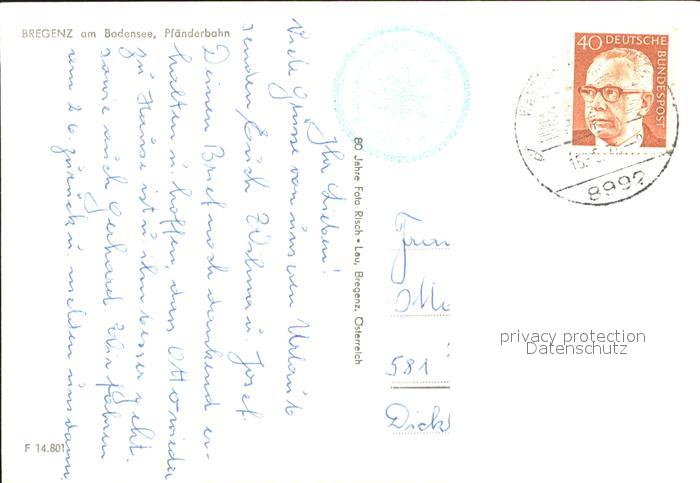 BREGENZ am Bodensee, Pfänderbahn
Ihr Lieben!
Viele Grüsse von unseren Urlaub
senden Euch Wilma u. Josef.
Deinen Brief noch dankend er-
halten u. hoffen, dass Otto wieder
zu Hause ist u. ihm besser geht.
sowie auch Gerhard. Wir fahren
am 26. zurück u. melden uns dann.
F 14.801
80 Jahre Foto Risch-Lau, Bregenz, Österreich
40 DEUTSCHE
BUNDESPOST
15.
8992
581
privacy protection
Datenschutz